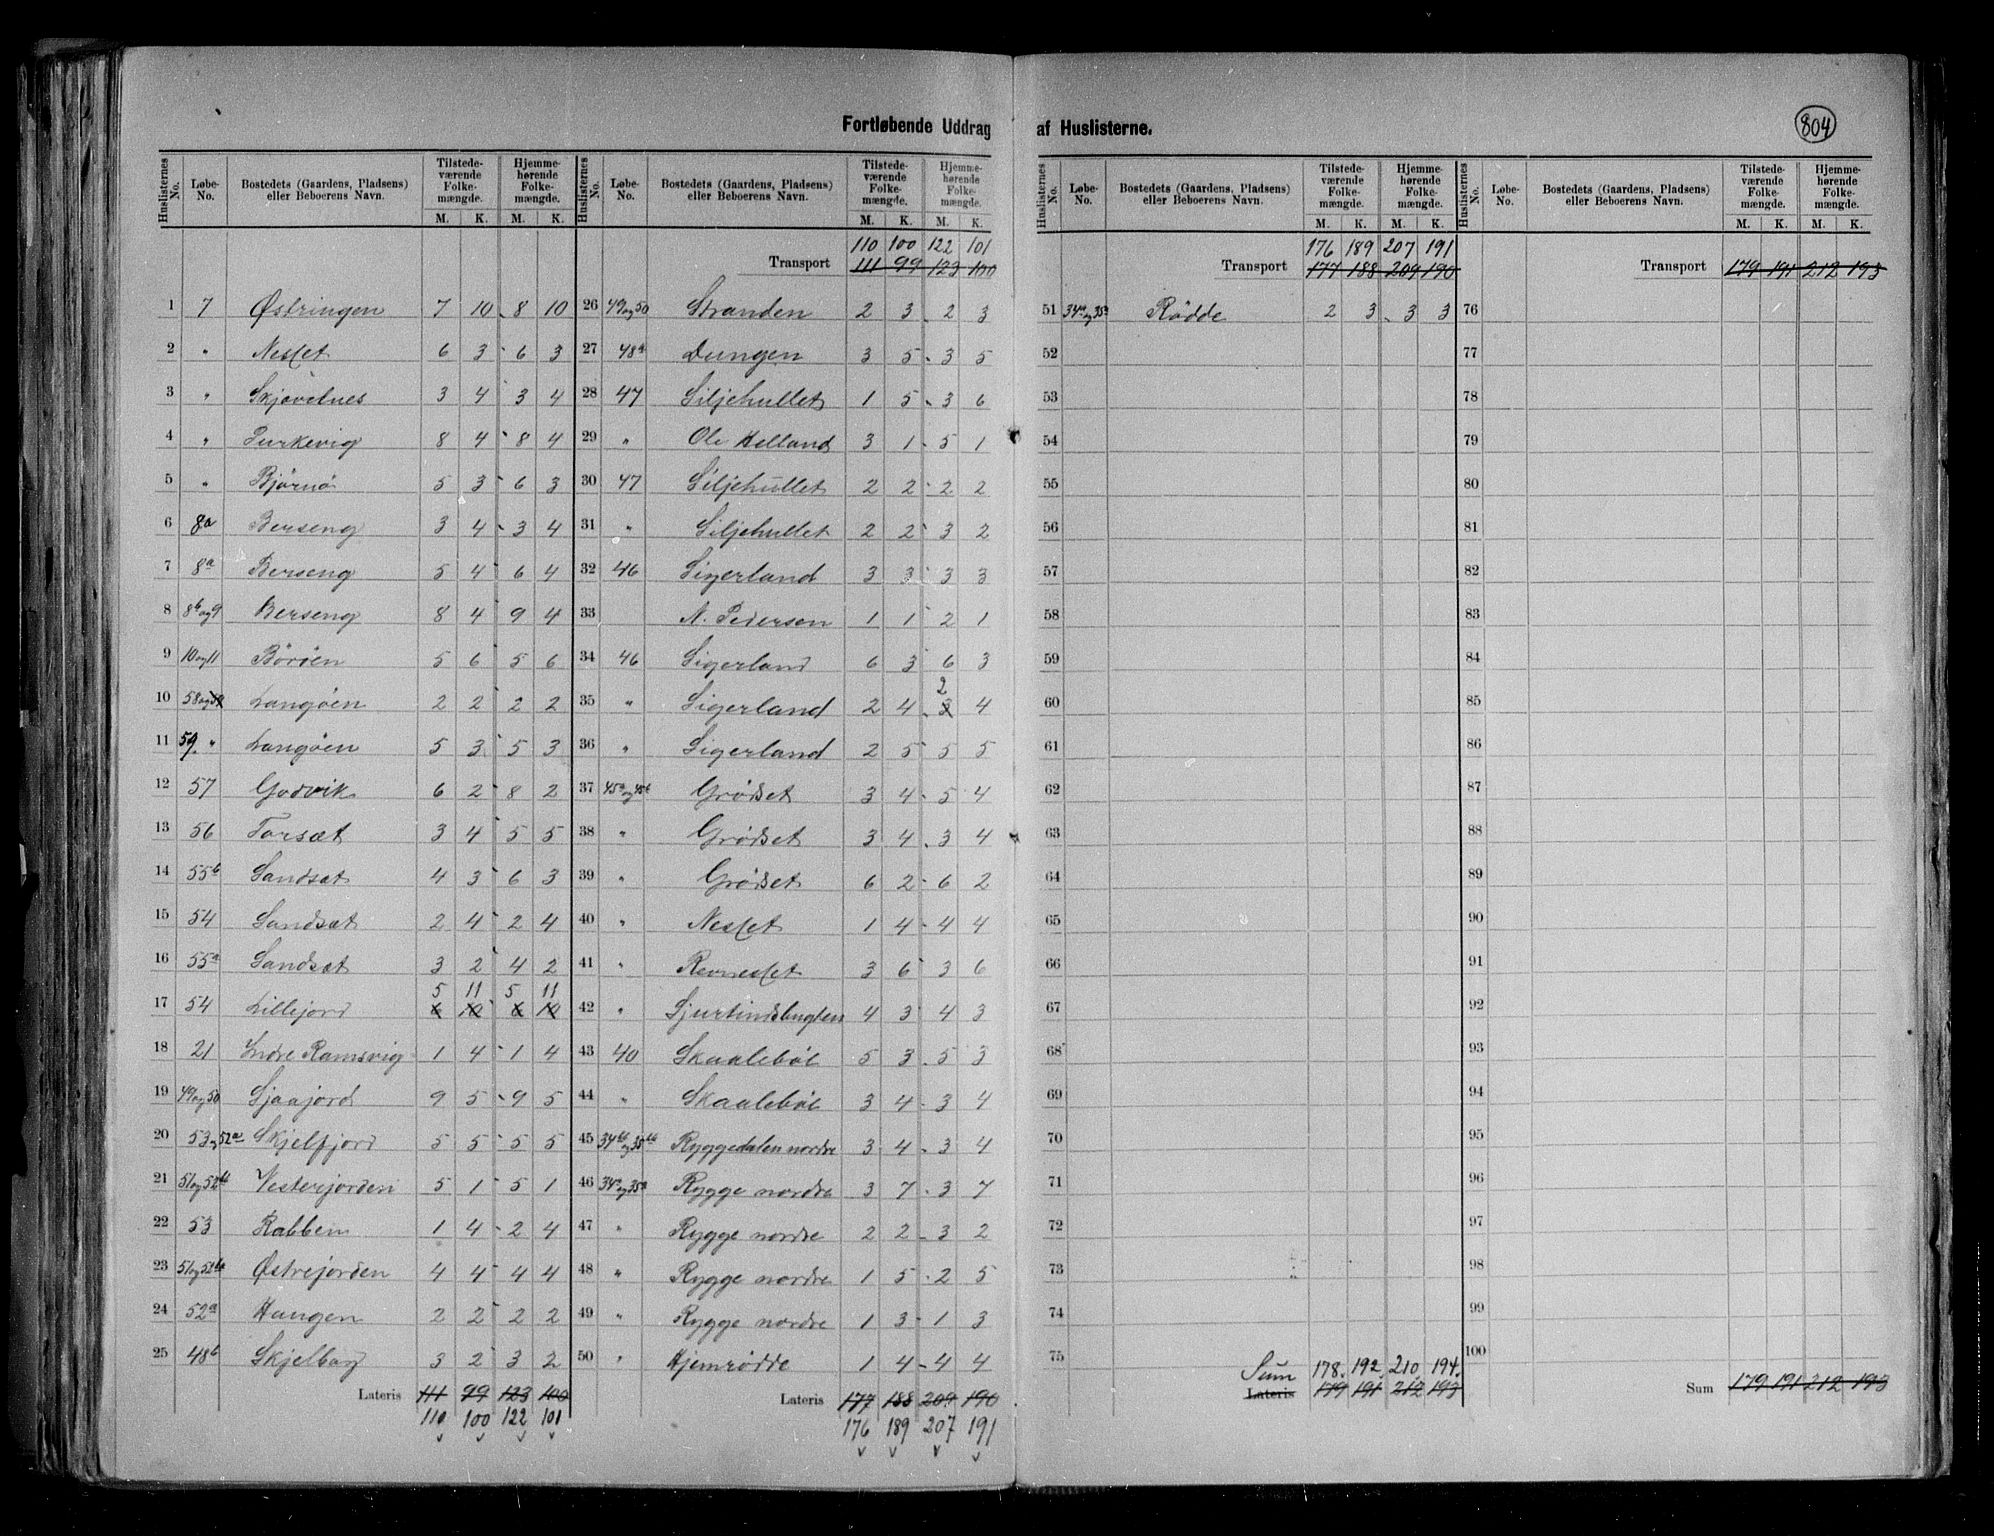 Fortløbende Uddrag af Huslisterne.
804
Huslisternes No. | Løbe-No. | Bostedets (Gaardens, Pladsens) eller Beboerens Navn. | Tilstedeværende Folkemængde. M. K. | Hjemmehørende Folkemængde. M. K.
1 7 Østringen 7 10 8 10
2 " Nesset 6 3 6 3
3 " Skjøvelnes 3 4 3 4
4 " Purkevig 8 4 8 4
5 " Bjørnø 5 3 6 3
6 8a Berseng 3 4 3 4
7 8a Berseng 5 4 6 4
8 8b og 9 Berseng 8 4 9 4
9 10 og 11 Böröen 5 6 5 6
10 58 og 59 Langöen 2 2 2 2
11 59. " Langöen 5 3 5 3
12 57 Godvik 6 2 8 2
13 56 Torsæt 3 4 5 5
14 55b Sandsæt 4 3 6 3
15 54 Sandsæt 2 4 2 4
16 55a Sandsæt 3 2 4 2
5 11 5 11
17 54 Lillejord 6 10 6 10
18 21 Indre Ramsvig 1 4 1 4
19 49 og 50 Sjaajord 9 5 9 5
20 53 og 52a Skjelfjord 5 5 5 5
21 51 og 52b Vesterjorden 5 1 5 1
22 53 Rabben 1 4 2 4
23 51 og 52b Østrejorden 4 4 4 4
24 52a Haugen 2 2 2 2
25 48b Skjelbog 3 2 3 2
Lateris 111 99 123 100
110 100 122 101
Huslisternes No. | Løbe-No. | Bostedets (Gaardens, Pladsens) eller Beboerens Navn. | Tilstedeværende Folkemængde. M. K. | Hjemmehørende Folkemængde. M. K.
110 100 122 101
Transport 111 99 123 100
26 49 og 50 Stranden 2 3 2 3
27 48a Dungen 3 5 3 5
28 47 Siljehullet 1 5 3 6
29 " Ole Helland 3 1 5 1
30 47 Siljehullet 2 2 2 2
31 " Siljehullet 2 2 3 2
32 46 Sigerland 3 3 3 3
33 N. Pedersen 1 1 2 1
34 46 Sigerland 6 3 6 3
2
35 " Sigerland 2 4 3 4
36 " Sigerland 2 5 5 5
37 45a og 45b Grødset 3 4 5 4
38 " Grødset 3 4 3 4
39 " Grødset 6 2 6 2
40 " Nesset 1 4 4 4
41 " Revnesset 3 6 3 6
42 " Sjurtindsbugten 4 3 4 3
43 40 Skaalebøl 5 3 5 3
44 " Skaalebøl 3 4 3 4
45 34b og 35b Ryggedalen nordre 3 4 3 4
46 34a og 35a Rygge nordre 3 7 3 7
47 " Rygge nordre 2 2 3 2
48 " Rygge nordre 1 5 2 5
49 " Rygge nordre 1 3 1 3
50 " Hjemrødde 1 4 4 4
Lateris 177 188 209 190
176 189 207 191
Huslisternes No. | Løbe-No. | Bostedets (Gaardens, Pladsens) eller Beboerens Navn. | Tilstedeværende Folkemængde. M. K. | Hjemmehørende Folkemængde. M. K.
176 189 207 191
Transport 177 188 209 190
51 34a og 35a Rødde 2 3 3 3
52
53
54
55
56
57
58
59
60
61
62
63
64
65
66
67
68
69
70
71
72
73
74
75
Sum 178. 192. 210. 194.
Lateris 179 191 212 193
Huslisternes No. | Løbe-No. | Bostedets (Gaardens, Pladsens) eller Beboerens Navn. | Tilstedeværende Folkemængde. M. K. | Hjemmehørende Folkemængde. M. K.
Transport 179 191 212 193
76
77
78
79
80
81
82
83
84
85
86
87
88
89
90
91
92
93
94
95
96
97
98
99
100
Sum 179 191 212 193